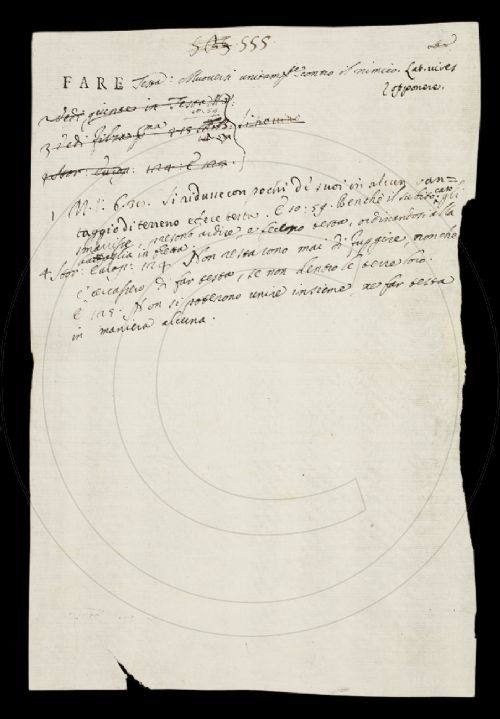 555.
FARE Testa: Muoversi unitam.te contro il nimico. Lat. vires
opponere.
Vedi giense in Testa
3 vedi
Stor: Europ: 124: E 125.
1 M.: 6.30. Si ridusse con pochi de suoi in alcun van=
taggio di terreno e fece testa. E 10: 59. Benchè il subito caso gli
smarrisse, presono ardire, e feceno testa, ordinandosi alla
battaglia in fretta.
4 Stor: Europ: 124. Non restarono mai di fuggire, non che
e' cercassero di far testa, se non dentro le terre loro.
E 125. Non si poterono unire insieme, ne far testa
in maniera alcuna.